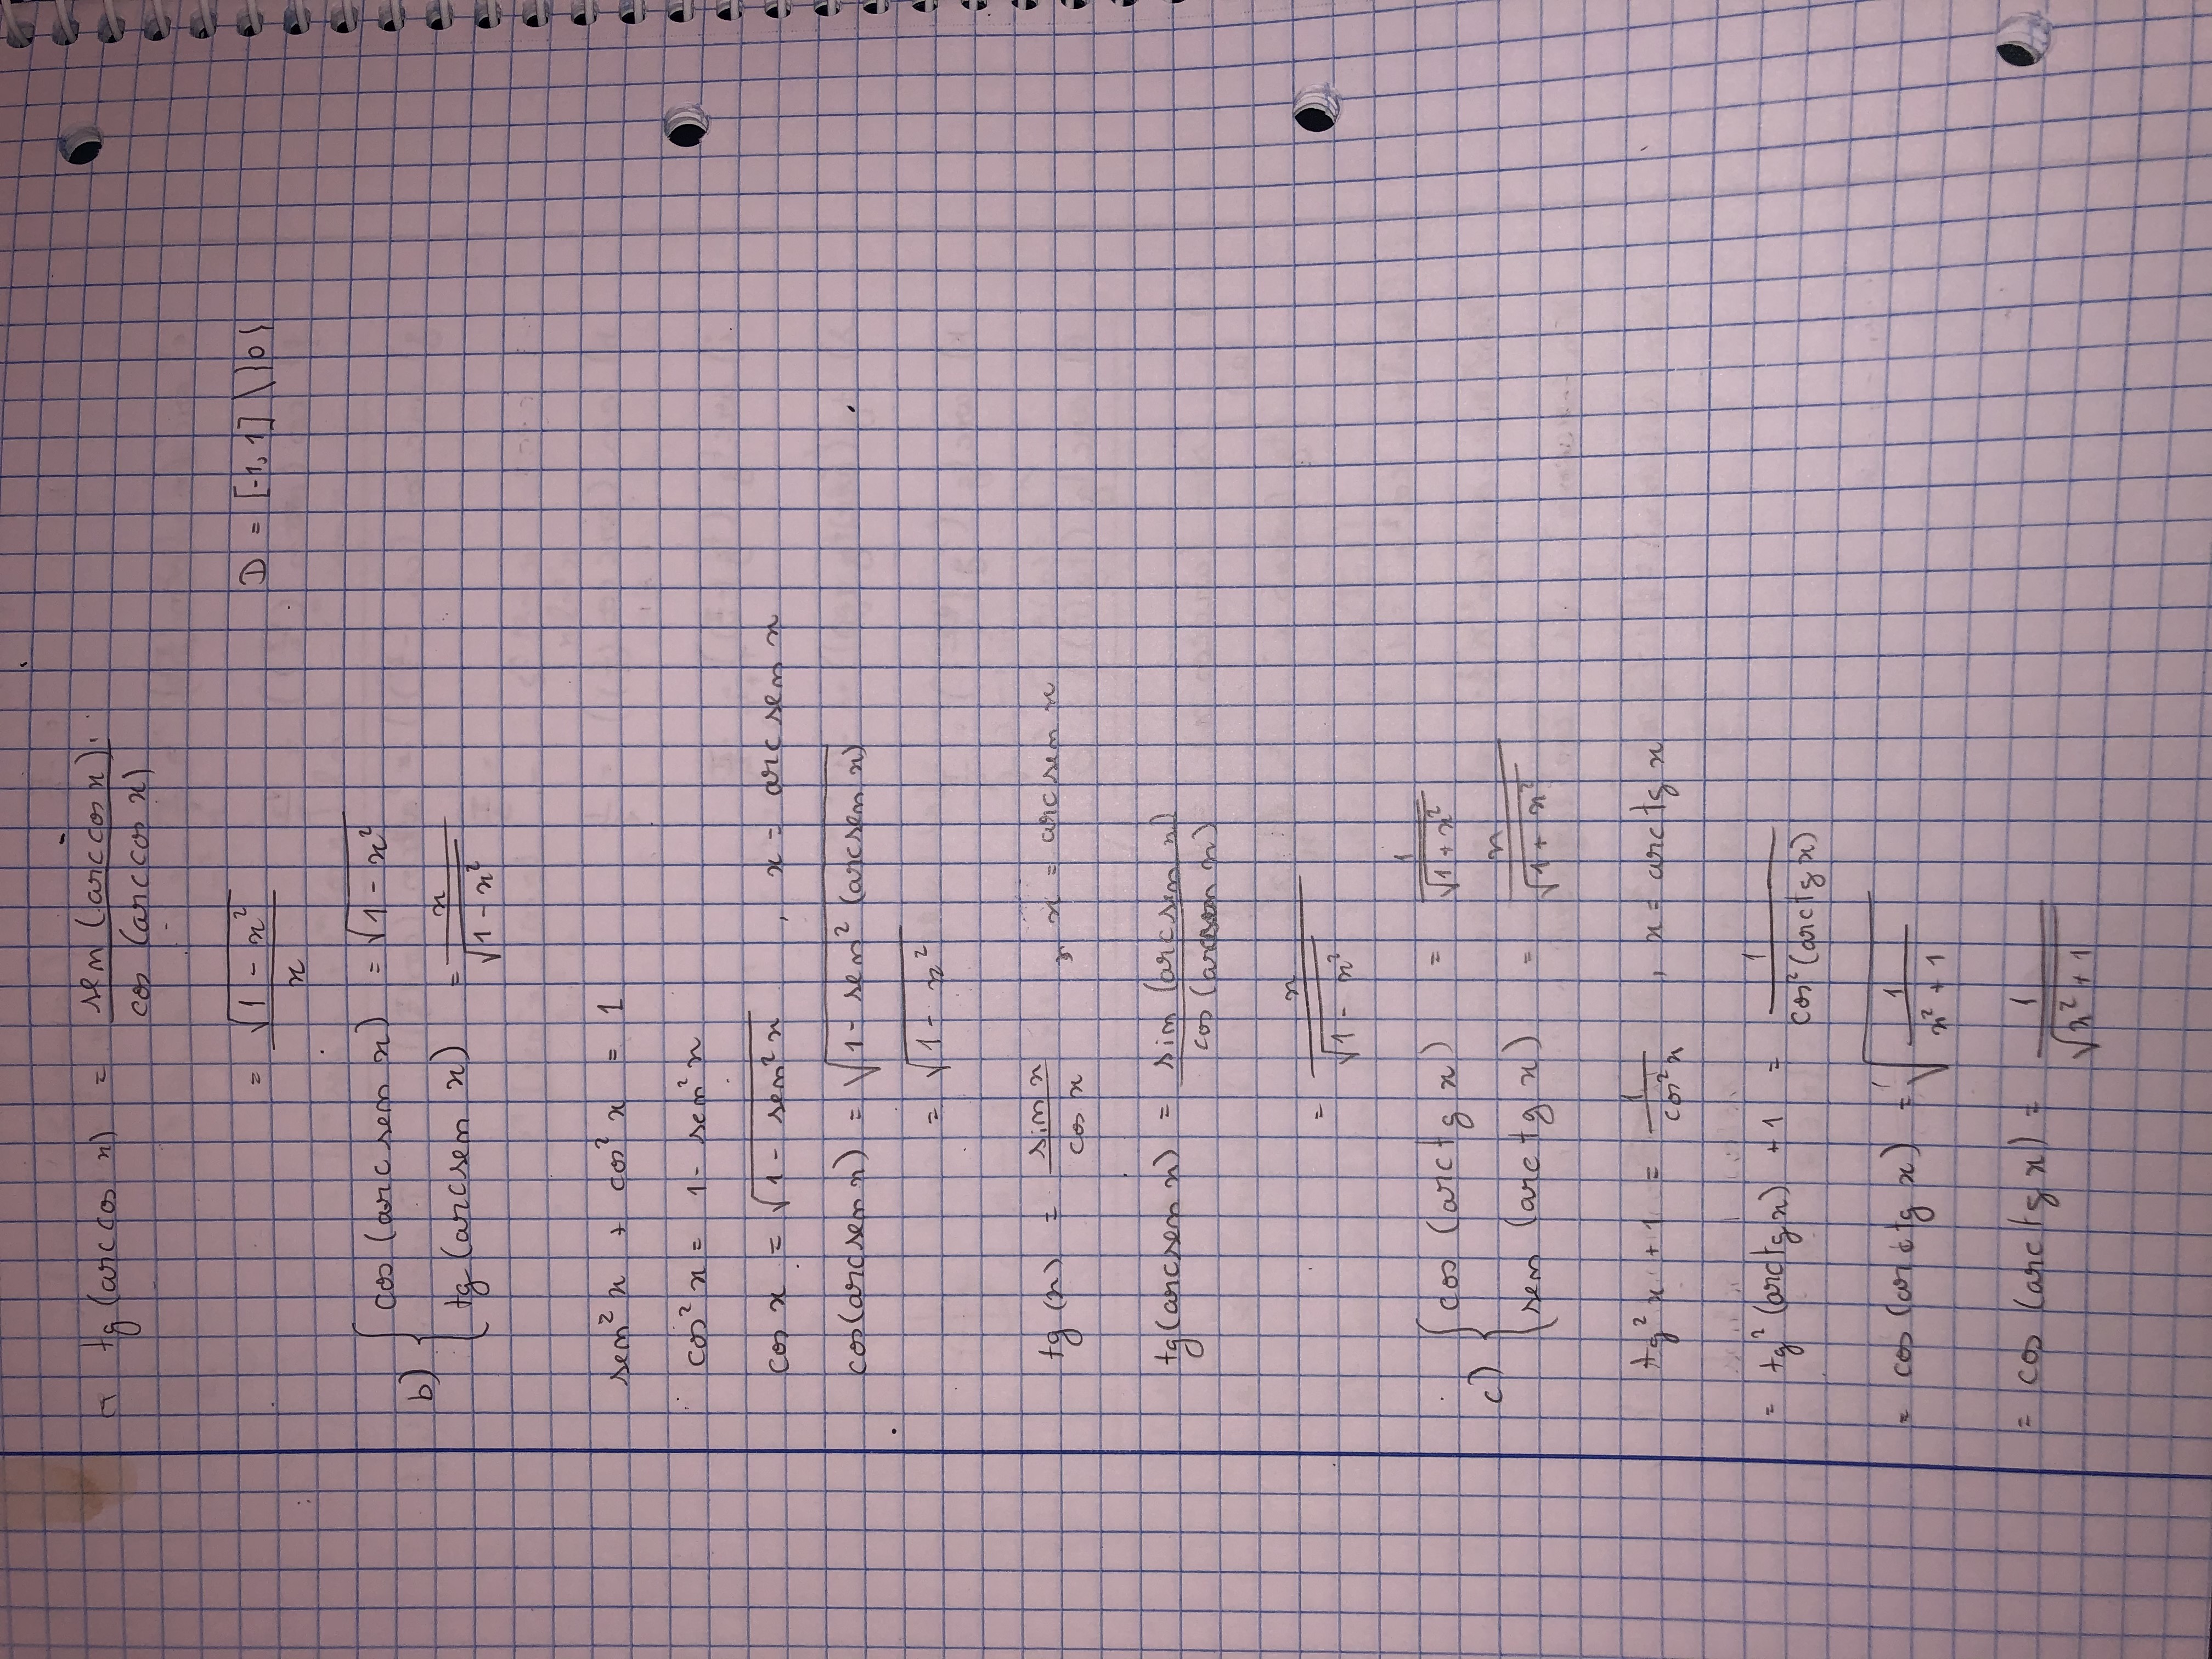 tg (arccos x) = sen (arccos x) / cos (arccos x)
= √(1 - x²) / x    D = [-1, 1] \ }0{
b) { cos (arcsen x) = √(1 - x²)
tg (arcsen x) = x / √(1 - x²)
sen² x + cos² x = 1
cos² x = 1 - sen² x
cos x = √(1 - sen² x) , x = arcsen x
cos(arcsen x) = √(1 - sen² (arcsen x))
= √(1 - x²)
tg (x) = sin x / cos x , x = arcsen x
tg (arcsen x) = sin (arcsin x) / cos (arcsen x)
= x / √(1 - x²)
c) { cos (arctg x) = 1 / √(1 + x²)
sen (arctg x) = x / √(1 + x²)
tg² x + 1 = 1 / cos² x , x = arctg x
= tg² (arctg x) + 1 = 1 / cos² (arctg x)
= cos (arctg x) = √(1 / (x² + 1))
= cos (arctg x) = 1 / √(x² + 1)